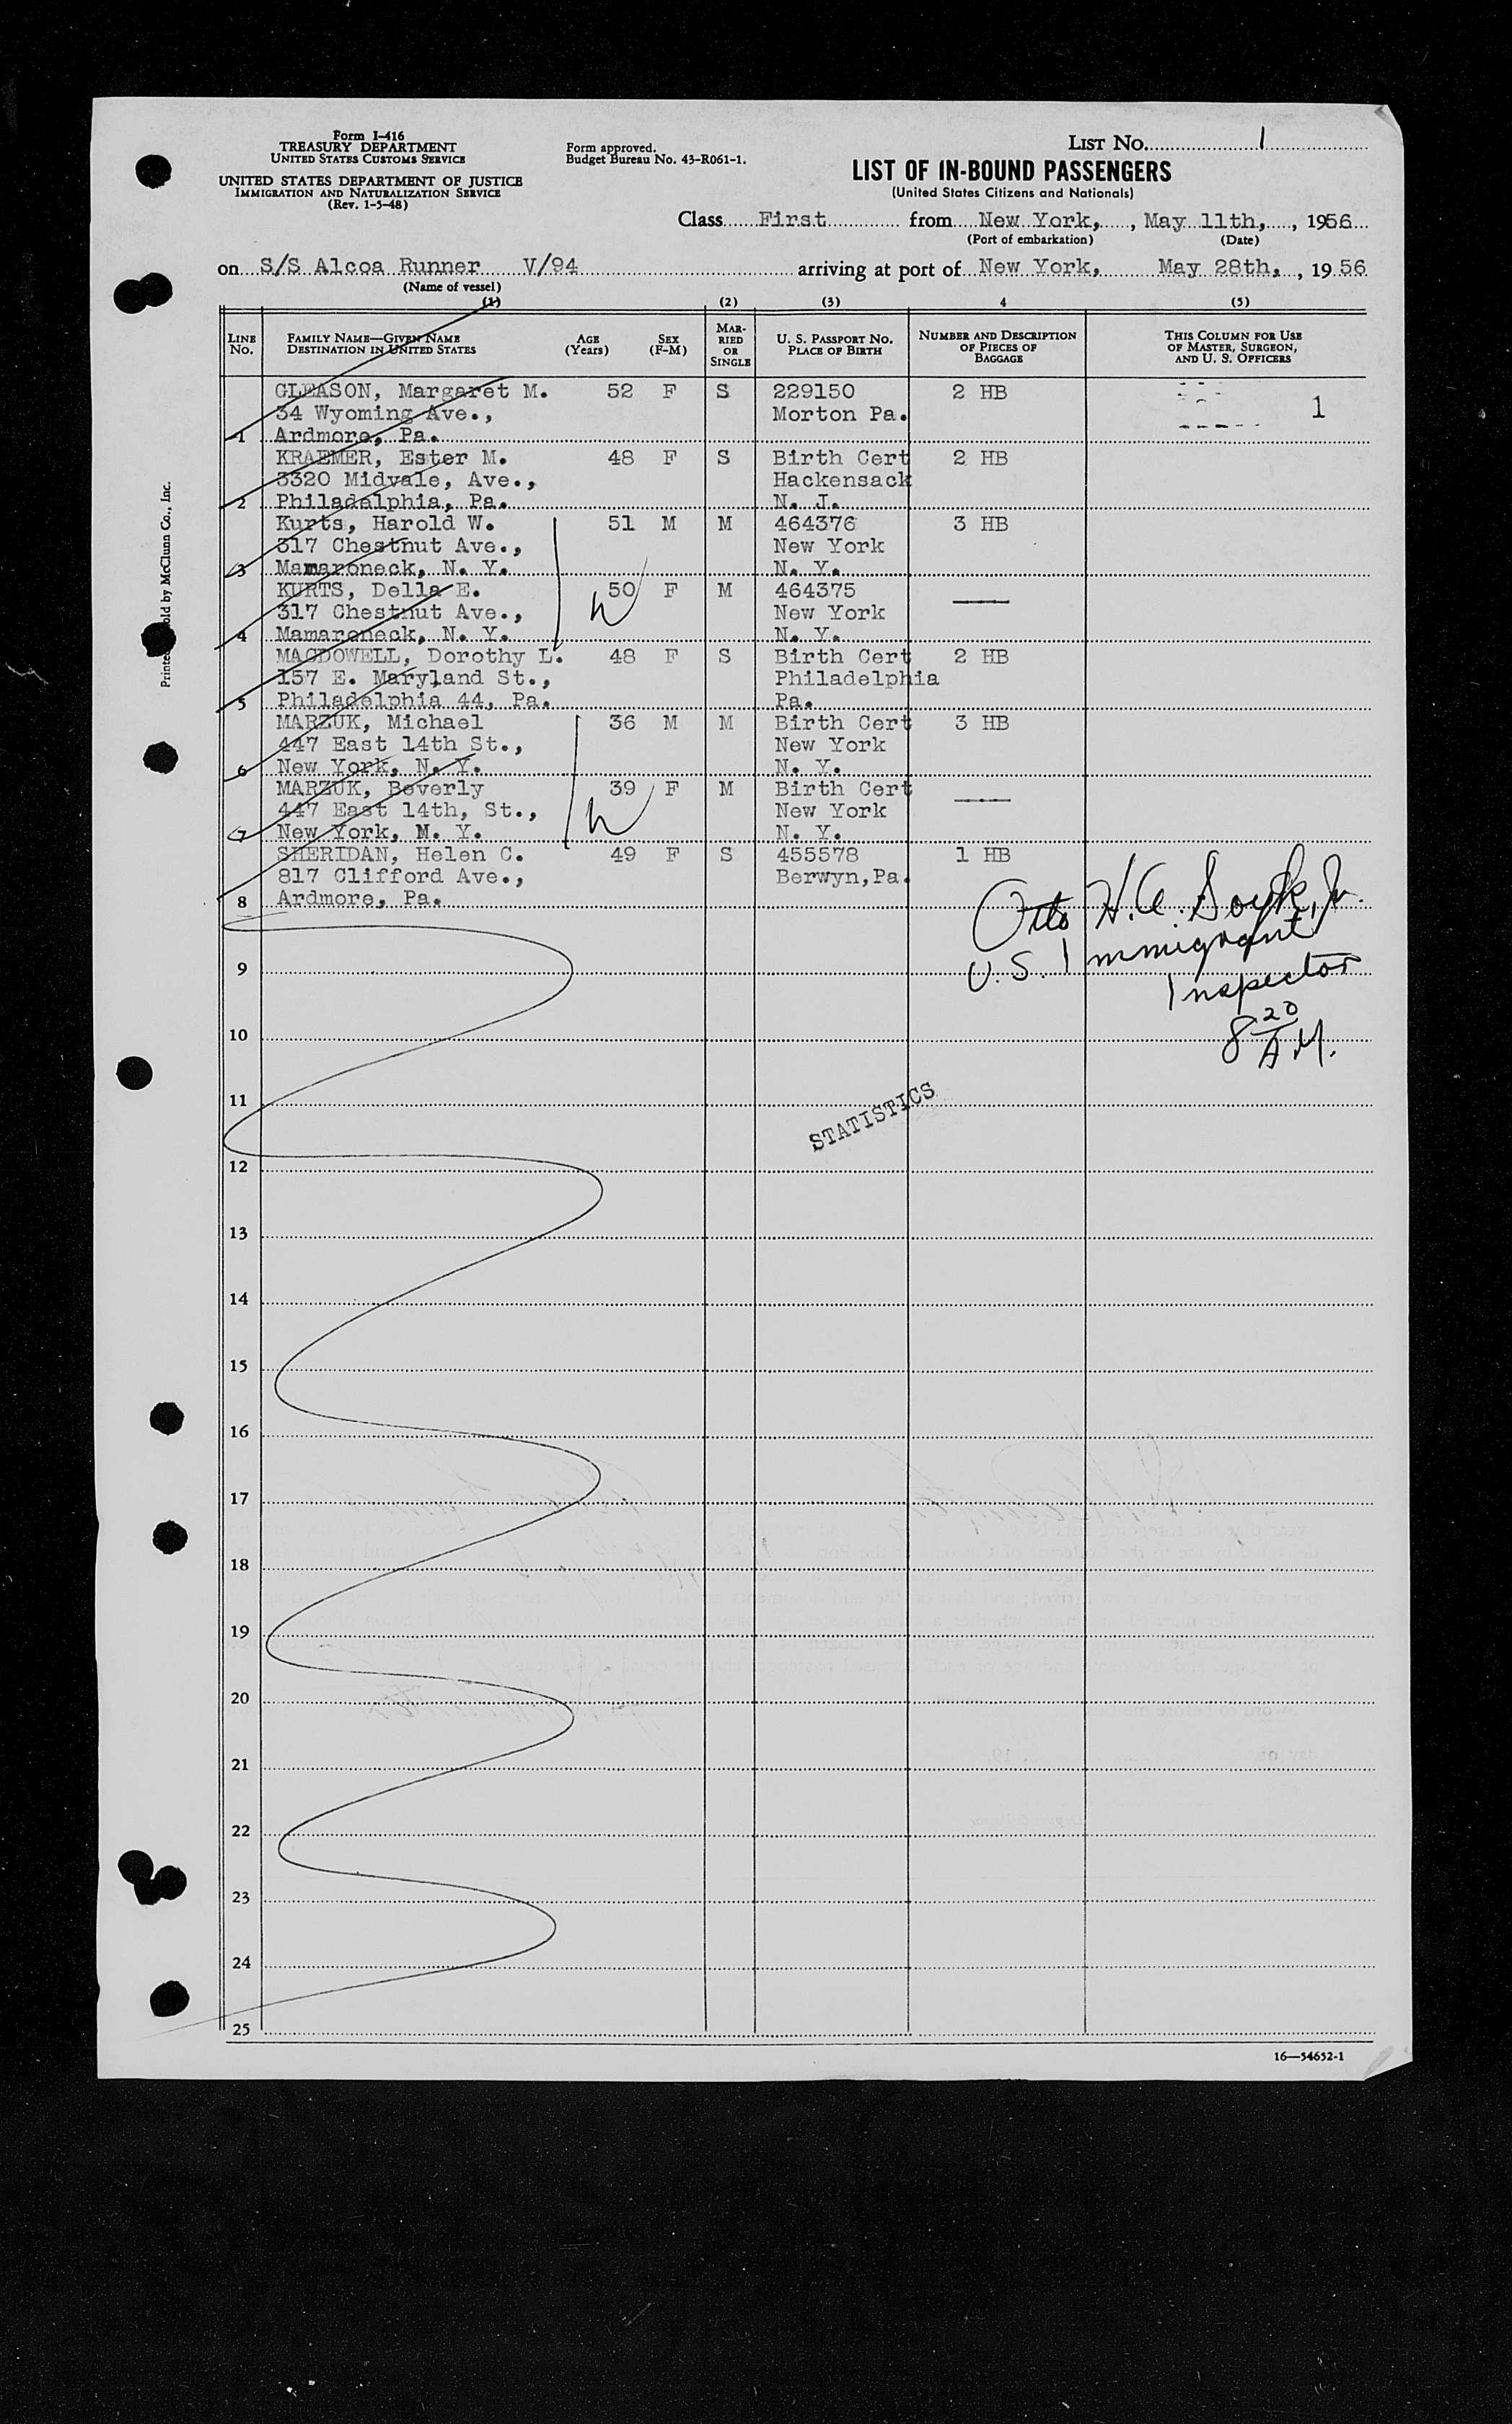 Form I-416
TREASURY DEPARTMENT
UNITED STATES CUSTOMS SERVICE
UNITED STATES DEPARTMENT OF JUSTICE
IMMIGRATION AND NATURALIZATION SERVICE
(Rev. 1-5-48)
Form approved.
Budget Bureau No. 43-R061-1.
LIST NO. 1
LIST OF IN-BOUND PASSENGERS
(United States Citizens and Nationals)
Class First from New York, , May 11th, , 1956
(Port of embarkation) (Date)
on S/S Alcoa Runner V/94 arriving at port of New York, May 28th, , 1956
(Name of vessel)
(1) (2) (3) 4 (5)
LINE No.
FAMILY NAME—GIVEN NAME
DESTINATION IN UNITED STATES
AGE (Years)
SEX (F-M)
MARRIED OR SINGLE
U. S. PASSPORT NO.
PLACE OF BIRTH
NUMBER AND DESCRIPTION OF PIECES OF BAGGAGE
THIS COLUMN FOR USE OF MASTER, SURGEON, AND U. S. OFFICERS
GLEASON, Margaret M. 52 F S 229150 2 HB
34 Wyoming Ave., Morton Pa. 1
1 Ardmore, Pa.
KRAEMER, Ester M. 48 F S Birth Cert 2 HB
3320 Midvale, Ave., Hackensack
2 Philadelphia, Pa. N. J.
Kurts, Harold W. 51 M M 464376 3 HB
317 Chestnut Ave., New York
3 Mamaroneck, N. Y. N. Y.
KURTS, Della E. 50 F M 464375
317 Chestnut Ave., New York
4 Mamaroneck, N. Y. N. Y.
MACDOWELL, Dorothy L. 48 F S Birth Cert 2 HB
157 E. Maryland St., Philadelphia
5 Philadelphia 44, Pa. Pa.
MARZUK, Michael 36 M M Birth Cert 3 HB
447 East 14th St., New York
6 New York, N. Y. N. Y.
MARZUK, Beverly 39 F M Birth Cert
447 East 14th, St., New York
7 New York, N. Y. N. Y.
SHERIDAN, Helen C. 49 F S 455578 1 HB
817 Clifford Ave., Berwyn,Pa.
8 Ardmore, Pa.
Otto H.A. Jr.
U.S. Immigrant
Inspector
8 20 A.M.
9
10
11
STATISTICS
12
13
14
15
16
17
18
19
20
21
22
23
24
25
16—54652-1